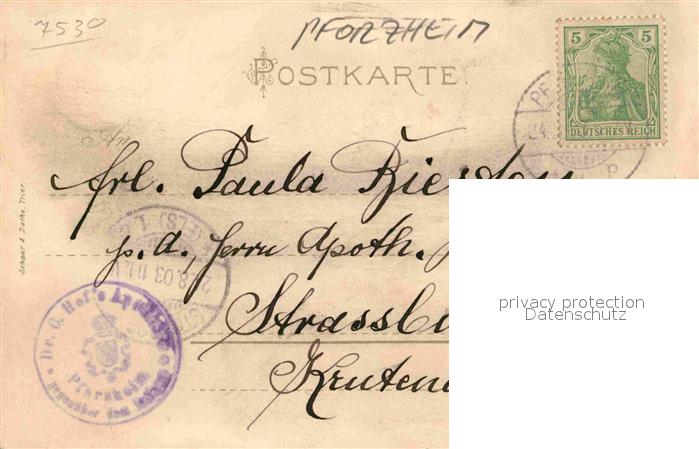 7530
PFORZHEIM
POSTKARTE
5 5
DEUTSCHES REICH
Frl. Paula
p. a. Herrn Apoth.
Strassbu
Kruten
Schaar & Dathe, Trier.
8.03 11-12V
Dr. O. Hof's Apotheke
Pforzheim
gegenüber dem
privacy protection
Datenschutz